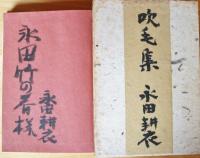 永田竹の春様
永田耕衣
吹毛集
永田耕衣